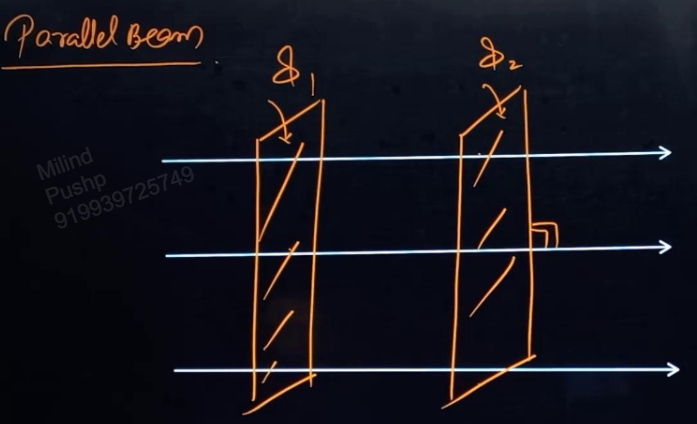 Parallel Beam
S₁
S₂
Milind
Pushp
919939725749